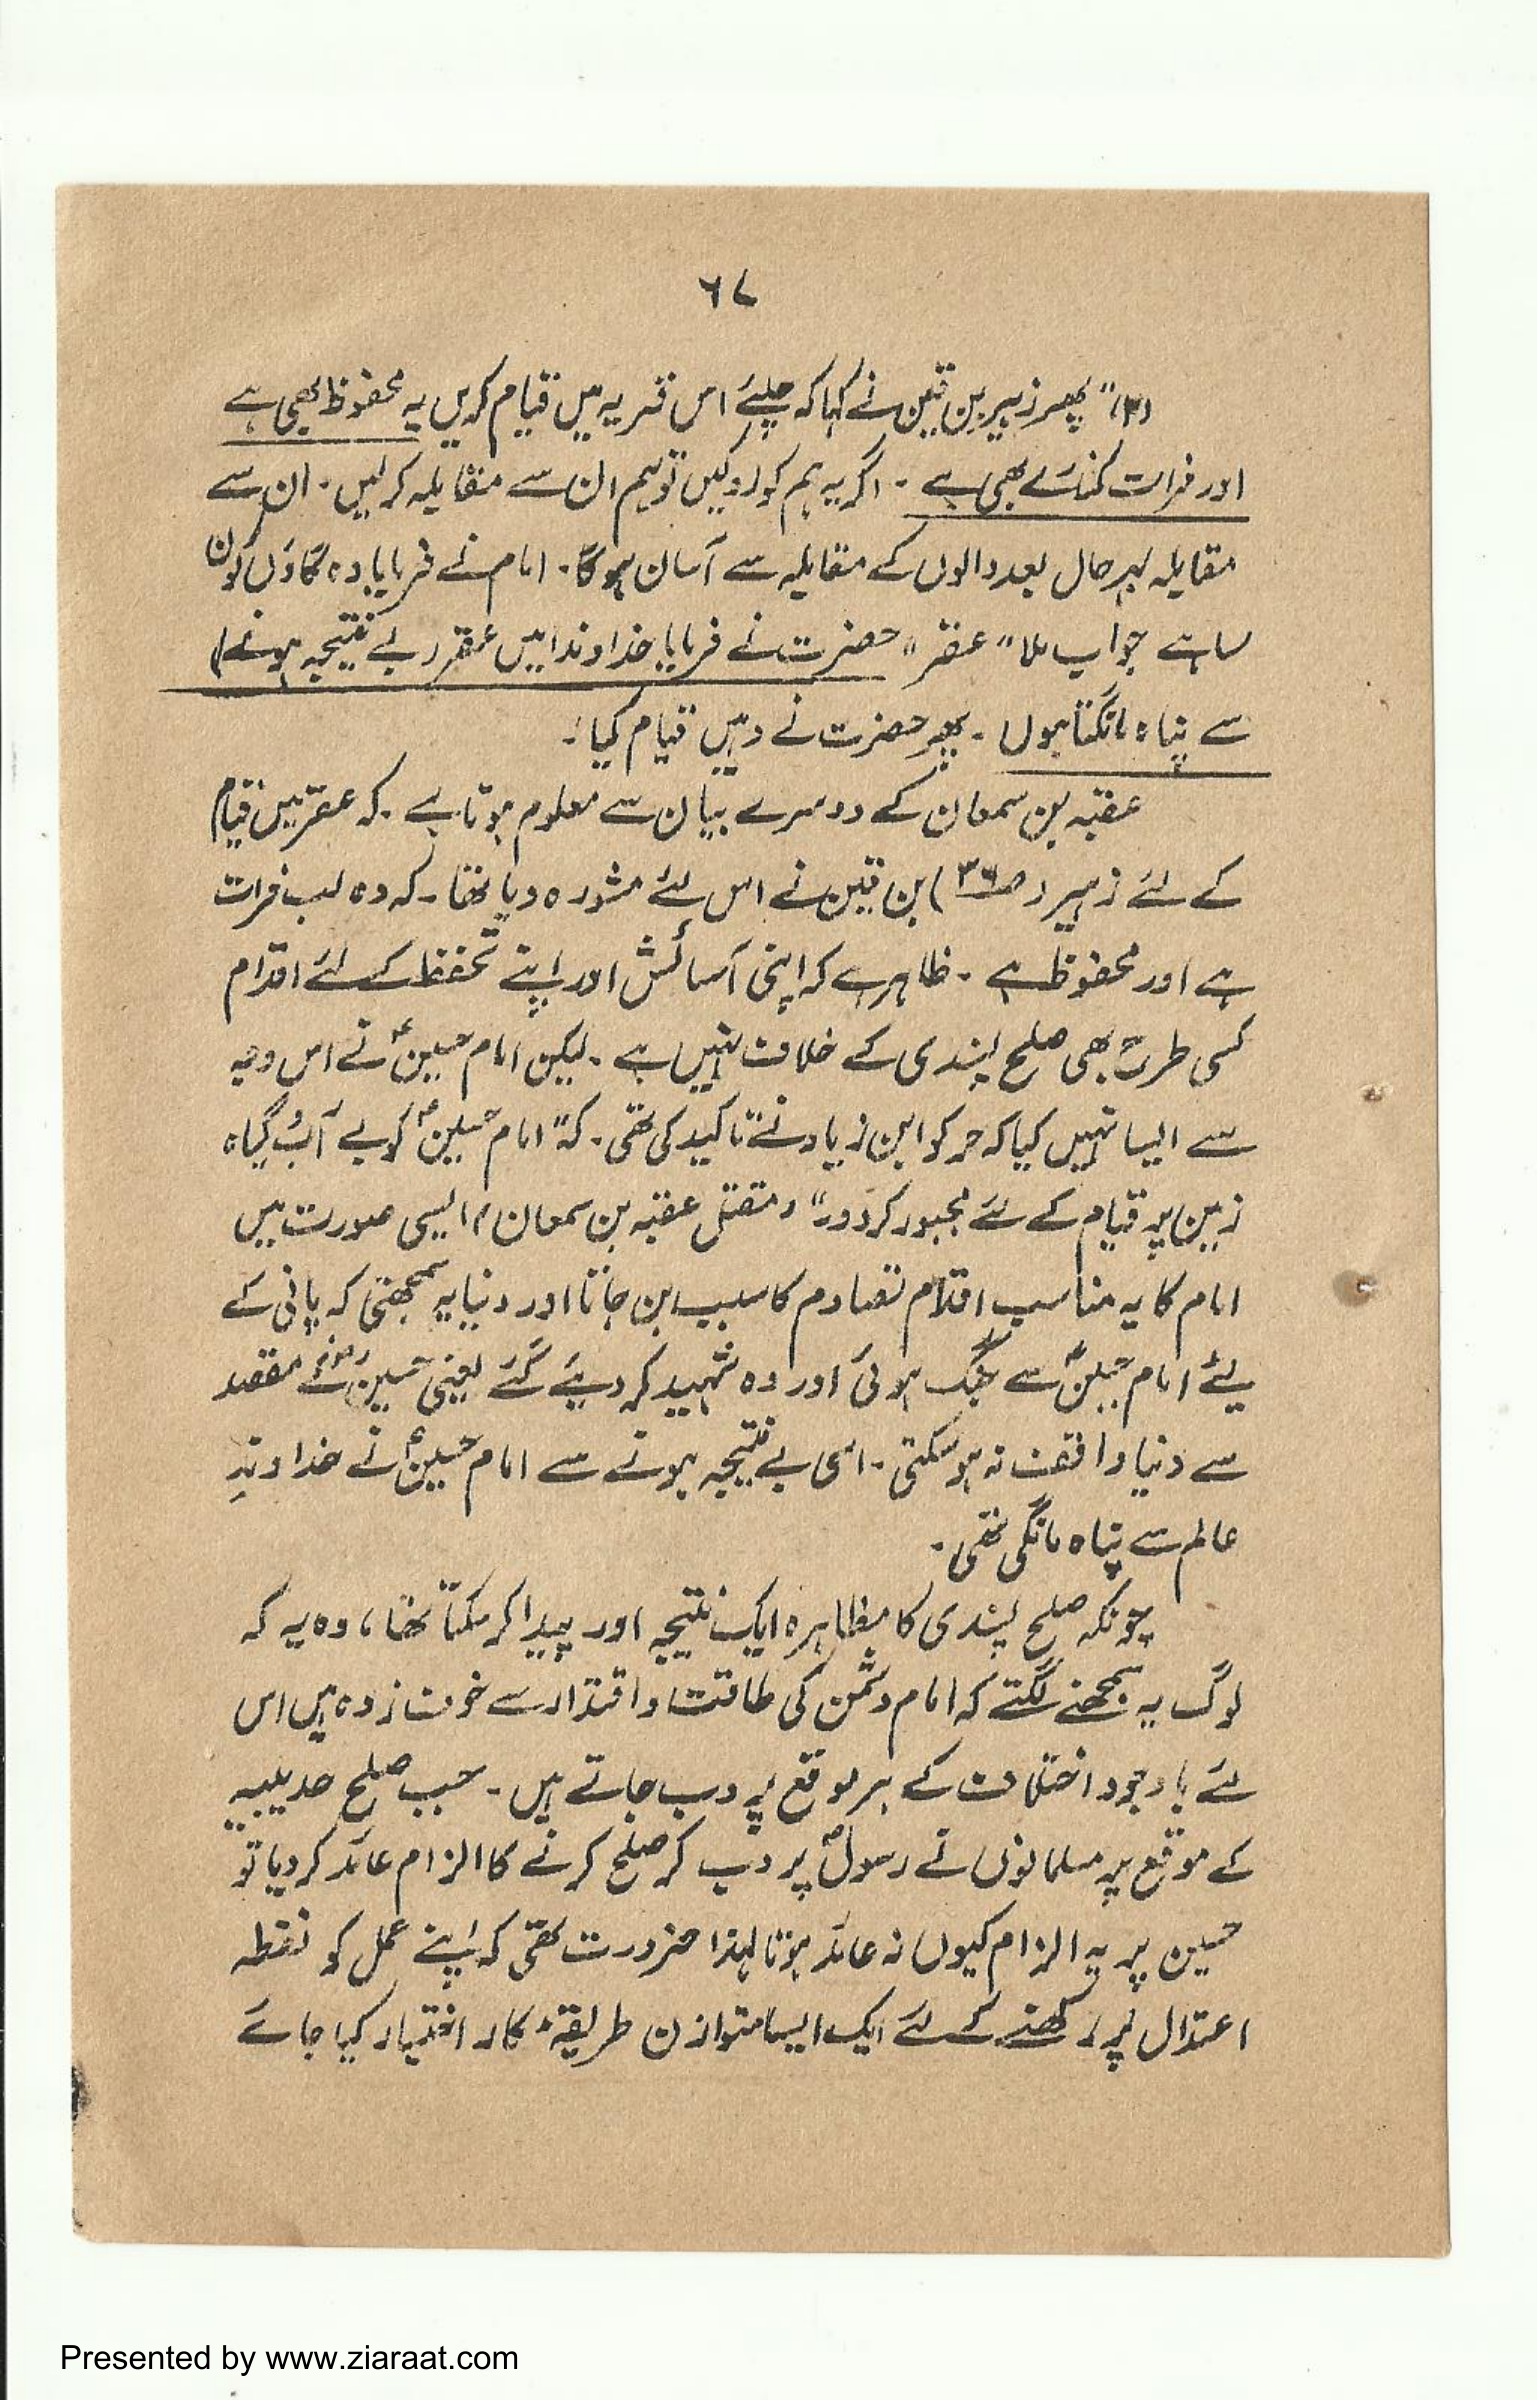 ۶۷
(۳)" پھر زہیر بن قین نے کہا کہ چلئے اس قریہ میں قیام کریں یہ محفوظ بھی ہے
اور فرات کنارے بھی ہے ۔ اگر یہ ہم کو روکیں تو ہم ان سے مقابلہ کرلیں ۔ ان سے
مقابلہ بہرحال بعد والوں کے مقابلہ سے آسان ہوگا ۔ امام نے فرمایا وہ گاؤں کون
سا ہے جواب ملا " عقر " حضرت نے فرمایا خداوندا میں عقر (بے نتیجہ ہونے)
سے پناہ مانگتا ہوں ۔ پھر حضرت نے وہیں قیام کیا ۔
عقبہ بن سمعان کے دوسرے بیان سے معلوم ہوتا ہے ۔ کہ عقر میں قیام
کے لئے زہیر (ص۳۶) بن قین نے اس لئے مشورہ دیا تھا ۔ کہ وہ لب فرات
ہے اور محفوظ ہے ۔ ظاہر ہے کہ اپنی آسائش اور اپنے تحفظ کے لئے اقدام
کسی طرح بھی صلح پسندی کے خلاف نہیں ہے ۔ لیکن امام حسینؑ نے اس وجہ
سے ایسا نہیں کیا کہ حر کو ابن زیاد نے تاکید کی تھی ۔ کہ " امام حسینؑ کو بے آب و گیاہ
زمین پر قیام کے لئے مجبور کر دو " (مقتل عقبہ بن سمعان) ایسی صورت میں
امام کا یہ مناسب اقدام تصادم کا سبب بن جاتا اور دنیا یہ سمجھتی کہ پانی کے
لیے امام حسینؑ سے جنگ ہوئی اور وہ شہید کر دیئے گئے یعنی حسینؑ کے مقصد
سے دنیا واقف نہ ہو سکتی ۔ اسی بے نتیجہ ہونے سے امام حسینؑ نے خداوندِ
عالم سے پناہ مانگی تھی ۔
چونکہ صلح پسندی کا مظاہرہ ایک نتیجہ اور پیدا کر سکتا تھا ، وہ یہ کہ
لوگ یہ سمجھنے لگتے کہ امام دشمن کی طاقت و اقتدار سے خوف زدہ ہیں اس
لئے باوجود اختلاف کے ہر موقع پر دب جاتے ہیں ۔ جب صلح حدیبیہ
کے موقع پر مسلمانوں نے رسولؐ پر دب کر صلح کرنے کا الزام عائد کر دیا تو
حسین پر یہ الزام کیوں نہ عائد ہوتا لہذا ضرورت تھی کہ اپنے عمل کو نقطہ
اعتدال پر رکھنے کے لئے ایک ایسا متوازن طریقۂ کار اختیار کیا جائے
Presented by www.ziaraat.com